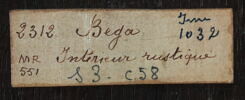 2312 Bega Inv
1032
MR Intérieur rustique
551
S 3. C58